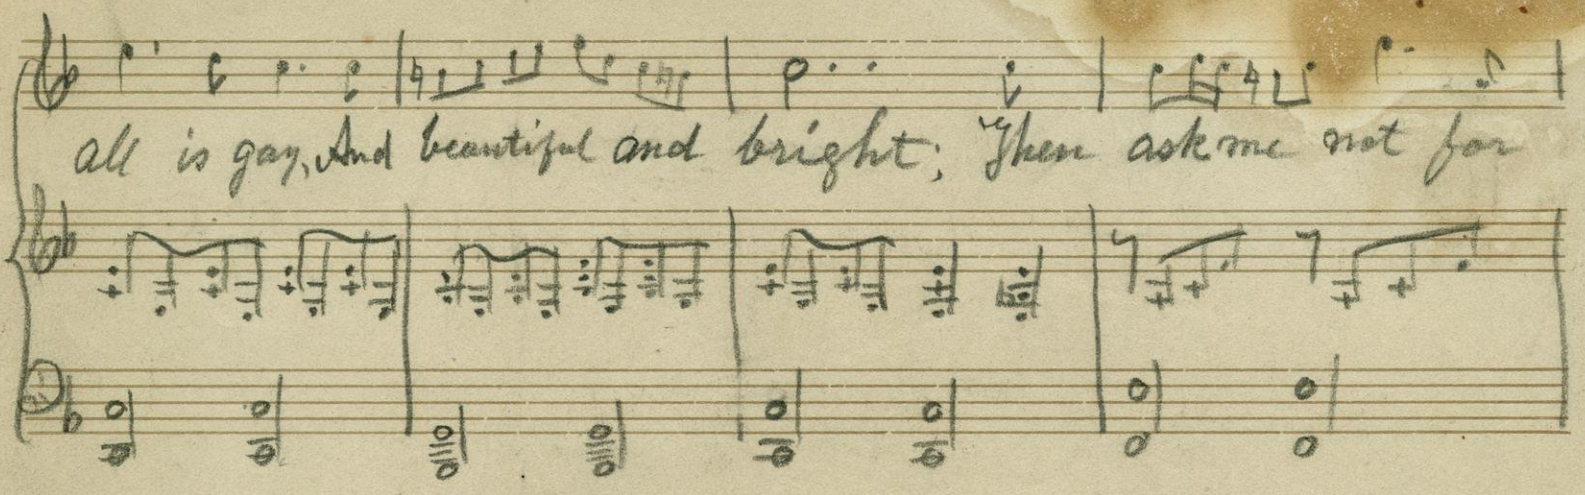 all is gay, And beautiful and bright; Then ask me not for